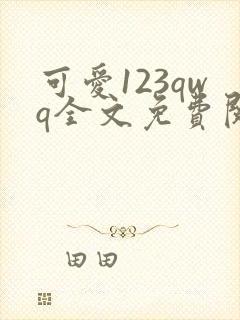 可愛123qw
q全文免費
田田